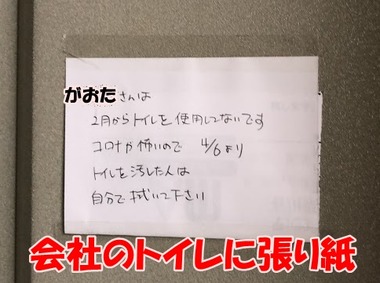 がおたさんは
2月からトイレを使用してないです
コロナが怖いので 4/6より
トイレを汚した人は
自分で拭いて下さい
会社のトイレに張り紙